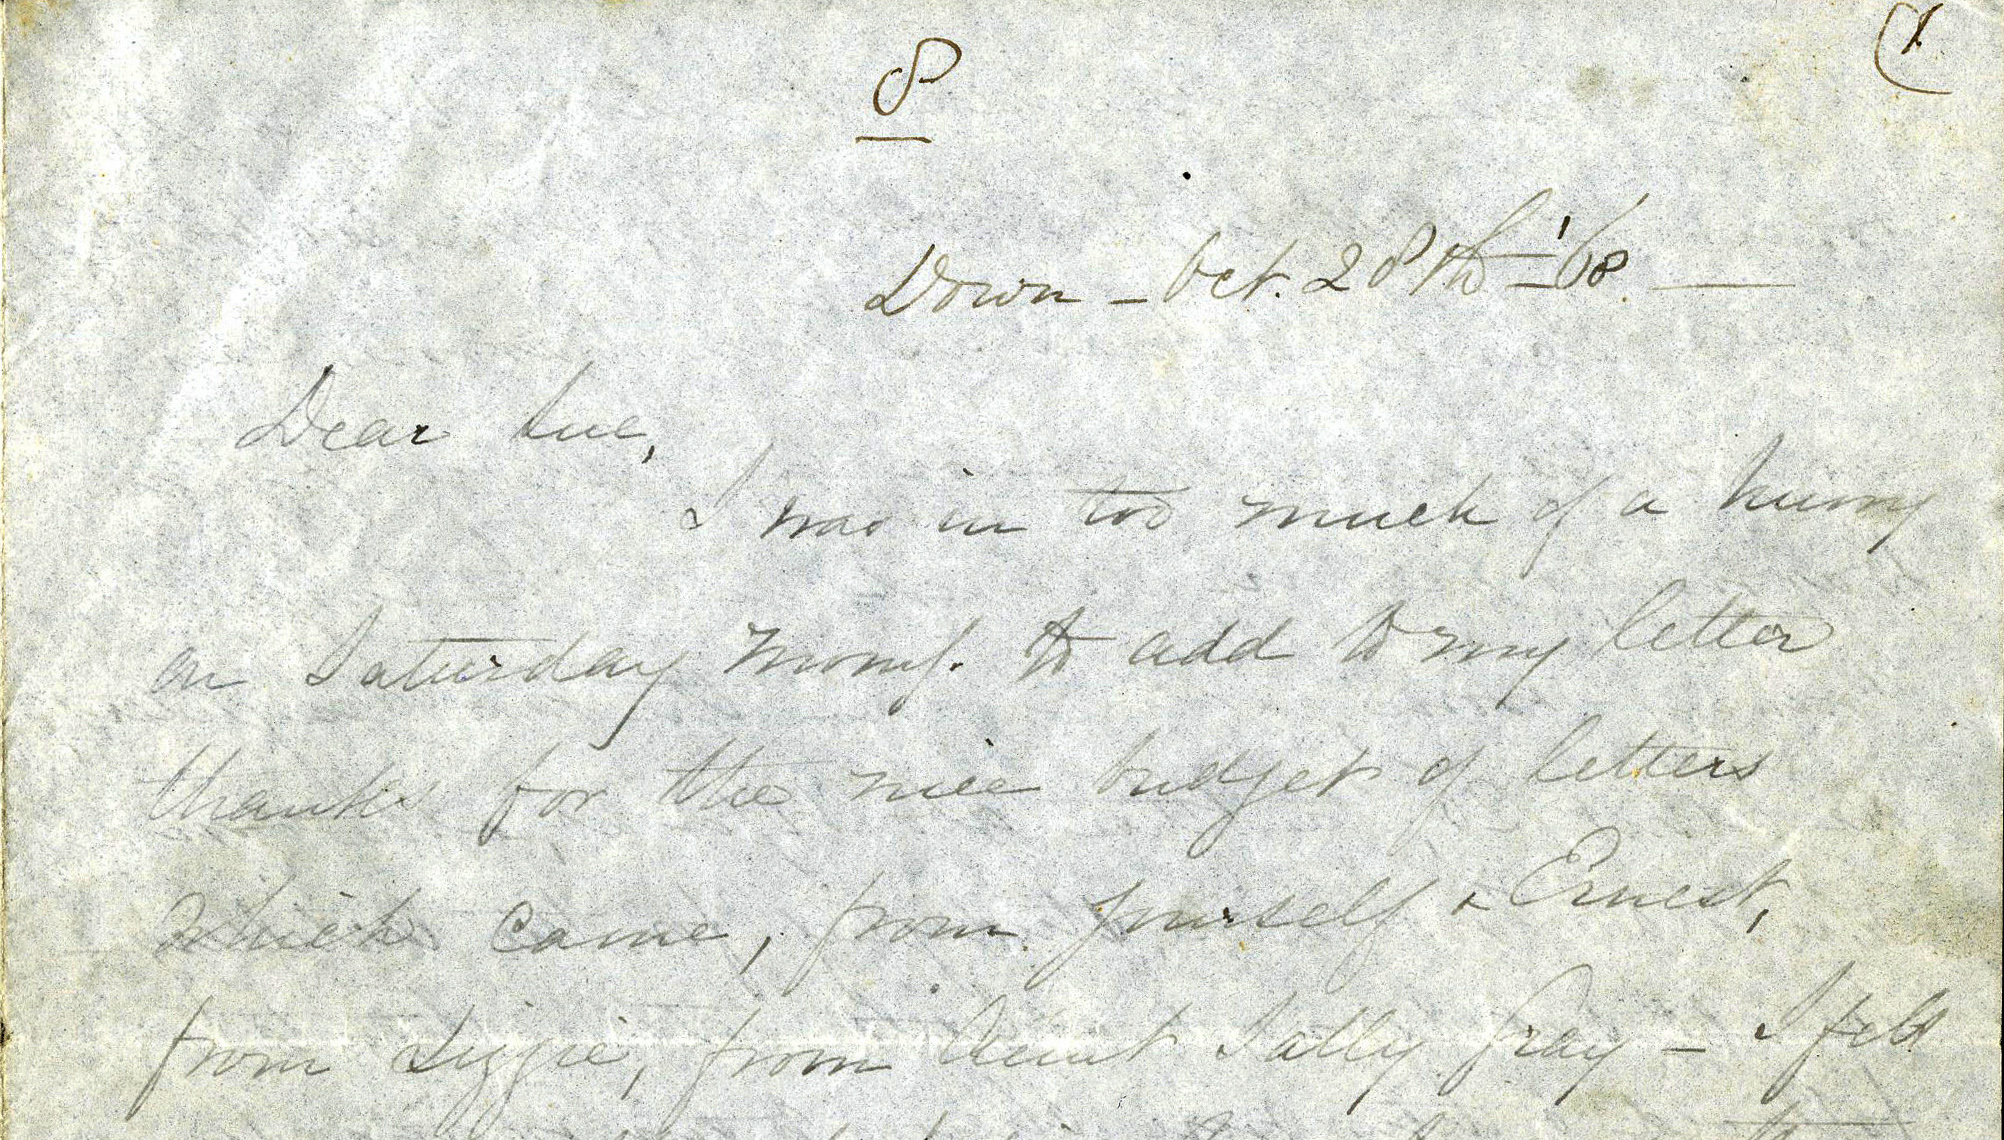 8
(1
Down - Oct. 28th - '68.
Dear Sue,
I was in too much of a hurry
on Saturday morng. to add to my letter
thanks for the nice budget of letters
which came, from yourself & Ernest,
from Lizzie, from Aunt Sally Gray - I felt